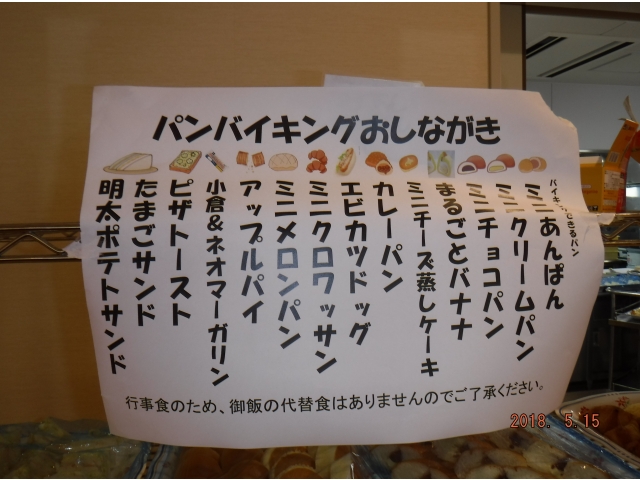 パンバイキングおしながき
バイキングできるパン
ミニあんぱん
ミニクリームパン
ミニチョコパン
まるごとバナナ
ミニチーズ蒸しケーキ
カレーパン
エビカツドッグ
ミニクロワッサン
ミニメロンパン
アップルパイ
小倉&ネオマーガリン
ピザトースト
たまごサンド
明太ポテトサンド
行事食のため、御飯の代替食はありませんのでご了承ください。
2018. 5.15